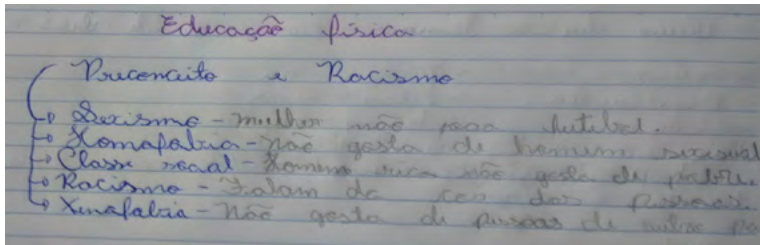 Educação física
Preconceito e Racismo
Sexismo - mulher não joga futebol.
Homofobia - Não gosta de homem
Classe social - Homem rico não gosta de pobre.
Racismo - Falam da cor das pessoas.
Xenofobia - Não gosta de pessoas de outro